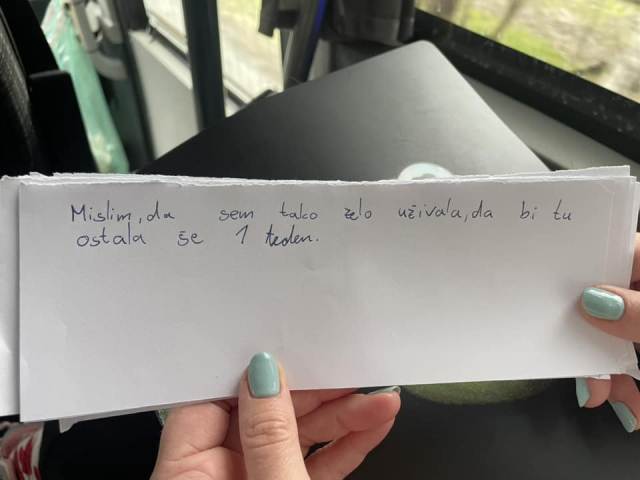 Mislim, da sem tako zelo uživala, da bi tu
ostala še 1 teden.